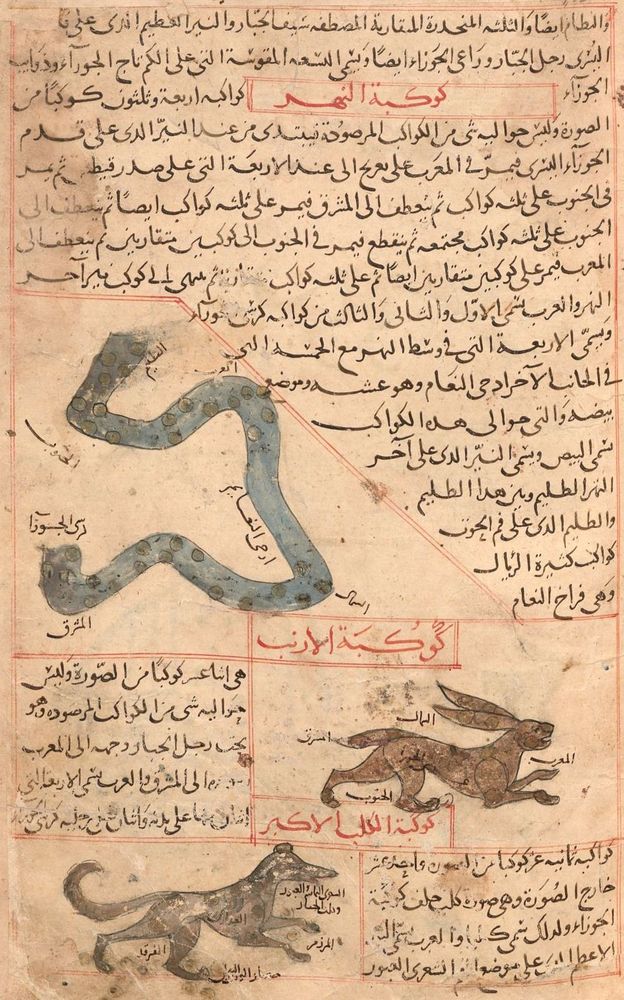 والنطاق ايضًا والثلثه المنحدرة المتقاربة المصطفه سيف الجبار والنير العظيم الذى على
اليسرى رجل الجبار وراعى الجوزاء ايضًا ويسمى التسعه المقوسة التى على الكم تاج الجوزآء وذوايب
الجوزآء
كوكبة النهر
كواكبه اربعة وثلثون كوكبًا من
الصورة وليس حواليه شى من الكواكب المرصودة فيبتدى من عند النيّر الذى على قدم
الجوزآء اليسرى فيمرّ فى المغرب على تعريج الى عند الاربعة التى على صدر قيطس ثم يمر
فى الجنوب على ثلثه كواكب ثم ينعطف الى المشرق فيمر على ثلثه كواكب ايضًا ثم ينعطف الى
الجنوب على ثلثه كواكب مجتمعه ثم ينقطع فيمر فى الجنوب الى كوكبين متقاربين ثم ينعطف الى
المغرب فيمر على كوكبين متقاربين ايضًا ثم على ثلثه كواكب متقاربة ثم ينتهى الى كوكب نير آخر
النهر والعرب يسمى الاوّل والثانى والثالث من كواكبه كرسى الجوزآء
ويسمّى الاربعة التى فى وسط النهر مع الخمسة التى
فى الجانب الآخر ادحى النعام وهو عشه وموضع
بيضه والتى حوالى هذه الكواكب
يسمى البيض ويسمى النيّر الذى على آخر
النهر الظليم وبين هذا الظليم
والظليم الذى على فم الحوت
كواكب كثيرة الرئال
وهى فراخ النعام
الظليم
المغرب
الجنوب
ادحى النعام
كرسى الجوزآ
الشمال
المشرق
كوكبة الارنب
هى اثنا عشر كوكبًا من الصّورة وليس
حواليه شى من الكواكب المرصوده وهو
تحت رجل الجبار وجهه الى المغرب
الى المشرق والعرب يسمى الاربعه التى
اثنان منها على يديه واثنان على رجليه كرسى الجوزآ
الشمال
المشرق
المغرب
الجنوب
كوكبة الكلب الاكبر
كواكبه ثمانيه عشر كوكبًا من الصورة واحد عشر
خارج الصّورة وهى صورة كلب خلف كوكبة
الجوزاء ولذلك يسمى كلبا والعرب يسمّى النير
الاعظم الذى على موضع الفم الشعرى العبور
الشعرى اليمانيه العبور
وكلب الجبار
العذارى
المرزم
الفرقد